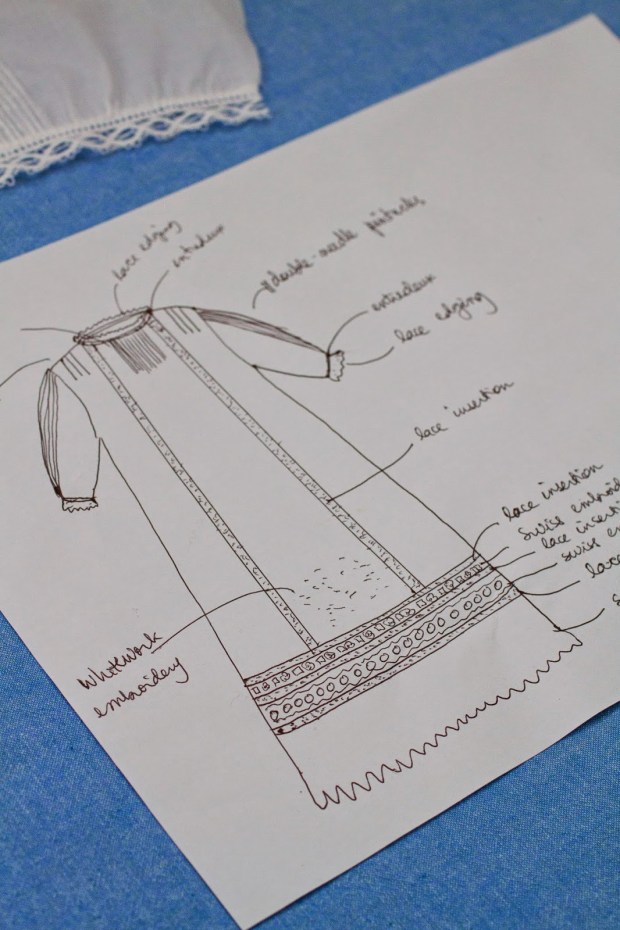 lace edging
entredeux
double-needle pintucks
entredeux
lace edging
lace insertion
lace insertion
Swiss embroid
lace inserti
swiss em
lace
S
Whitework
embroidery